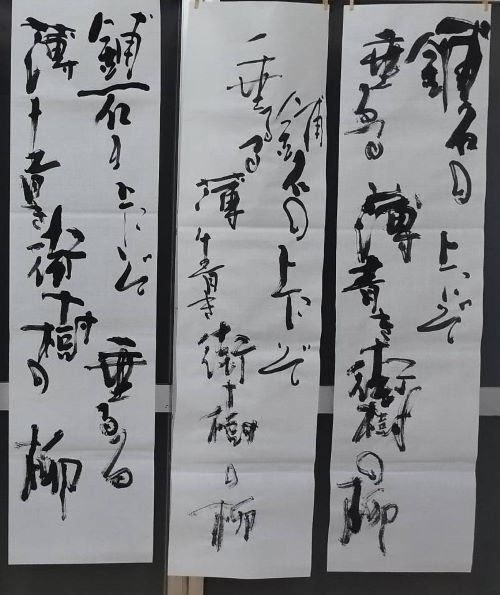 鋪石の上にいで
垂るる薄青き街樹の柳
鋪石の上にいで
垂るる薄青き街樹の柳
鋪石の上にいで垂るる
薄青き街樹の柳